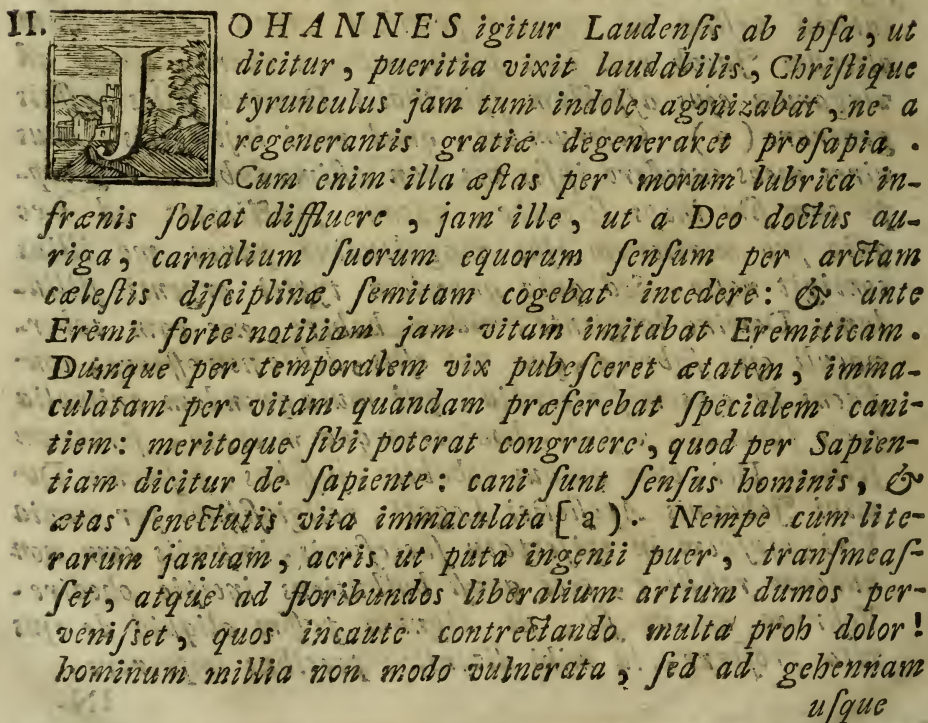 II. JOHANNES igitur Laudenſis ab ipſa, ut
dicitur, pueritia vixit laudabilis, Chriſtique
tyrunculus jam tum indole agonizabat, ne a
regenerantis gratiæ degeneraret proſapia.
Cum enim illa æſtas per morum lubrica in-
frænis ſoleat diffluere, jam ille, ut a Deo doctus au-
riga, carnalium ſuorum equorum ſenſum per arctam
cæleſtis diſciplinæ ſemitam cogebat incedere: & ante
Eremi forte notitiam jam vitam imitabat Eremiticam.
Dumque per temporalem vix pubeſceret ætatem, imma-
culatam per vitam quandam præferebat ſpecialem cani-
tiem: meritoque ſibi poterat congruere, quod per Sapien-
tiam dicitur de ſapiente: cani ſunt ſenſus hominis, &
ætas ſenectutis vita immaculata [a). Nempe cum lite-
rarum januam, acris ut puta ingenii puer, tranſmeaſ-
ſet, atque ad floribundos liberalium artium dumos per-
veniſſet, quos incaute contrectando multa proh dolor!
hominum millia non modo vulnerata, ſed ad gehennam
uſque